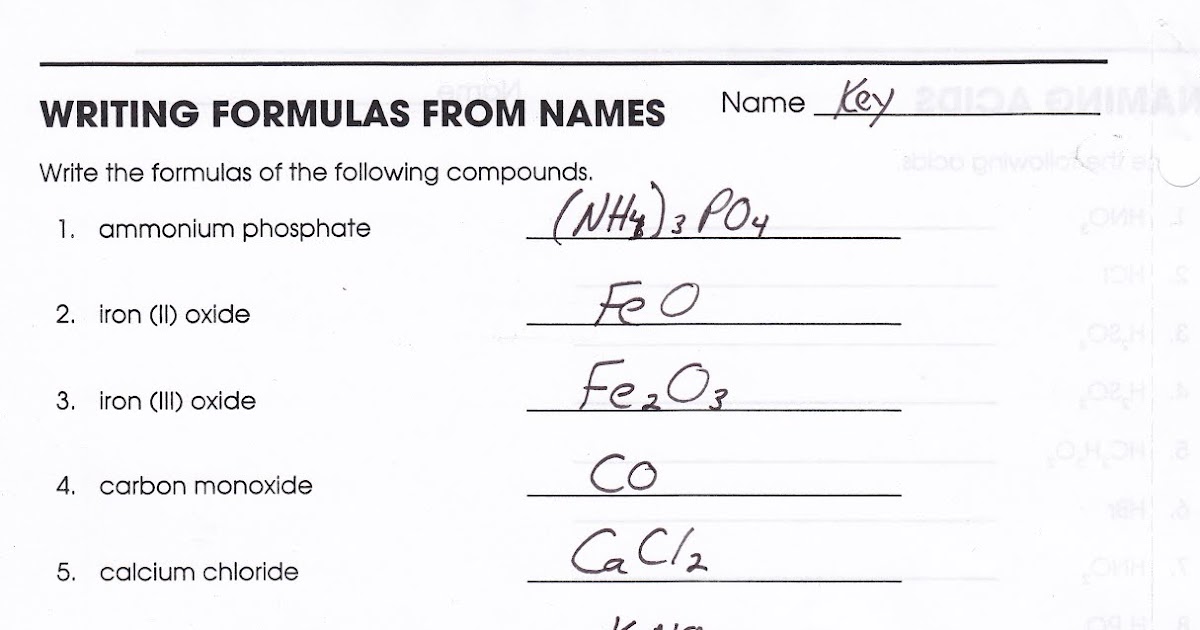 WRITING FORMULAS FROM NAMES Name Key
Write the formulas of the following compounds.
1. ammonium phosphate (NH4)3PO4
2. iron (II) oxide FeO
3. iron (III) oxide Fe2O3
4. carbon monoxide CO
5. calcium chloride CaCl2